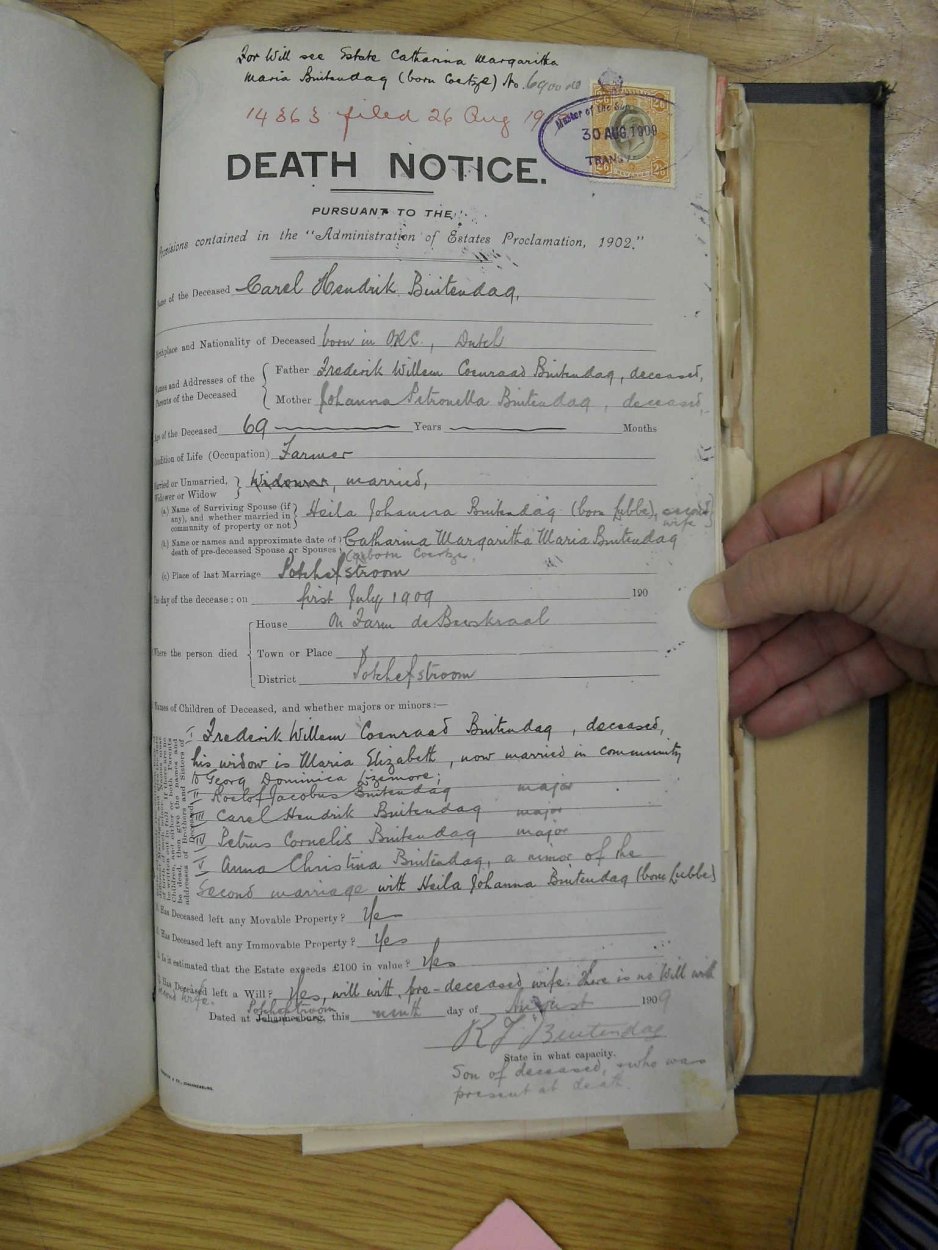 For Will see Estate Catharina Margaritha
Maria Buitendag (born Coetze) No. 6900
14363 filed 26 Aug 19
Master of the Sup
30 AUG 1909
TRANS
2/6 2/6
REVENUE
2/6 2/6
DEATH NOTICE.
PURSUANT TO THE
Provisions contained in the "Administration of Estates Proclamation, 1902."
Name of the Deceased Carel Hendrik Buitendag,
Birthplace and Nationality of Deceased born in ORC, Dutch
Names and Addresses of the Parents of the Deceased
Father Frederik Willem Coenraad Buitendag, deceased,
Mother Johanna Petronella Buitendag, deceased,
Age of the Deceased 69 Years Months
Condition of Life (Occupation) Farmer
Married or Unmarried, Widower or Widow Widower, married,
(a) Name of Surviving Spouse (if any), and whether married in community of property or not Heila Johanna Buitendag (born Lubbe), second wife
(b.) Name or names and approximate date of death of pre-deceased Spouse or Spouses Catharina Margaritha Maria Buitendag
born Coetze,
(c) Place of last Marriage Potchefstroom
The day of the decease: on first July 1909 190
Where the person died
House On Farm
Town or Place
District Potchefstroom
Names of Children of Deceased, and whether majors or minors:—
I Frederik Willem Coenraad Buitendag, deceased,
his widow is Maria Elizabeth, now married in community
to Georg Dominica
II Roelof Jacobus Buitendag major
III Carel Hendrik Buitendag major
IV Petrus Cornelis Buitendag major
V Anna Christina Buitendag, a minor of the
Second marriage with Heila Johanna Buitendag (born Lubbe)
Has Deceased left any Movable Property? Yes
Has Deceased left any Immovable Property? Yes
Is it estimated that the Estate exceeds £100 in value? Yes
Has Deceased left a Will? Yes, will with pre-deceased wife. There is no Will with
second wife.
Potchefstroom
Dated at Johannesburg, this ninth day of August 1909
R J Buitendag
State in what capacity.
Son of deceased, who was
present at death.